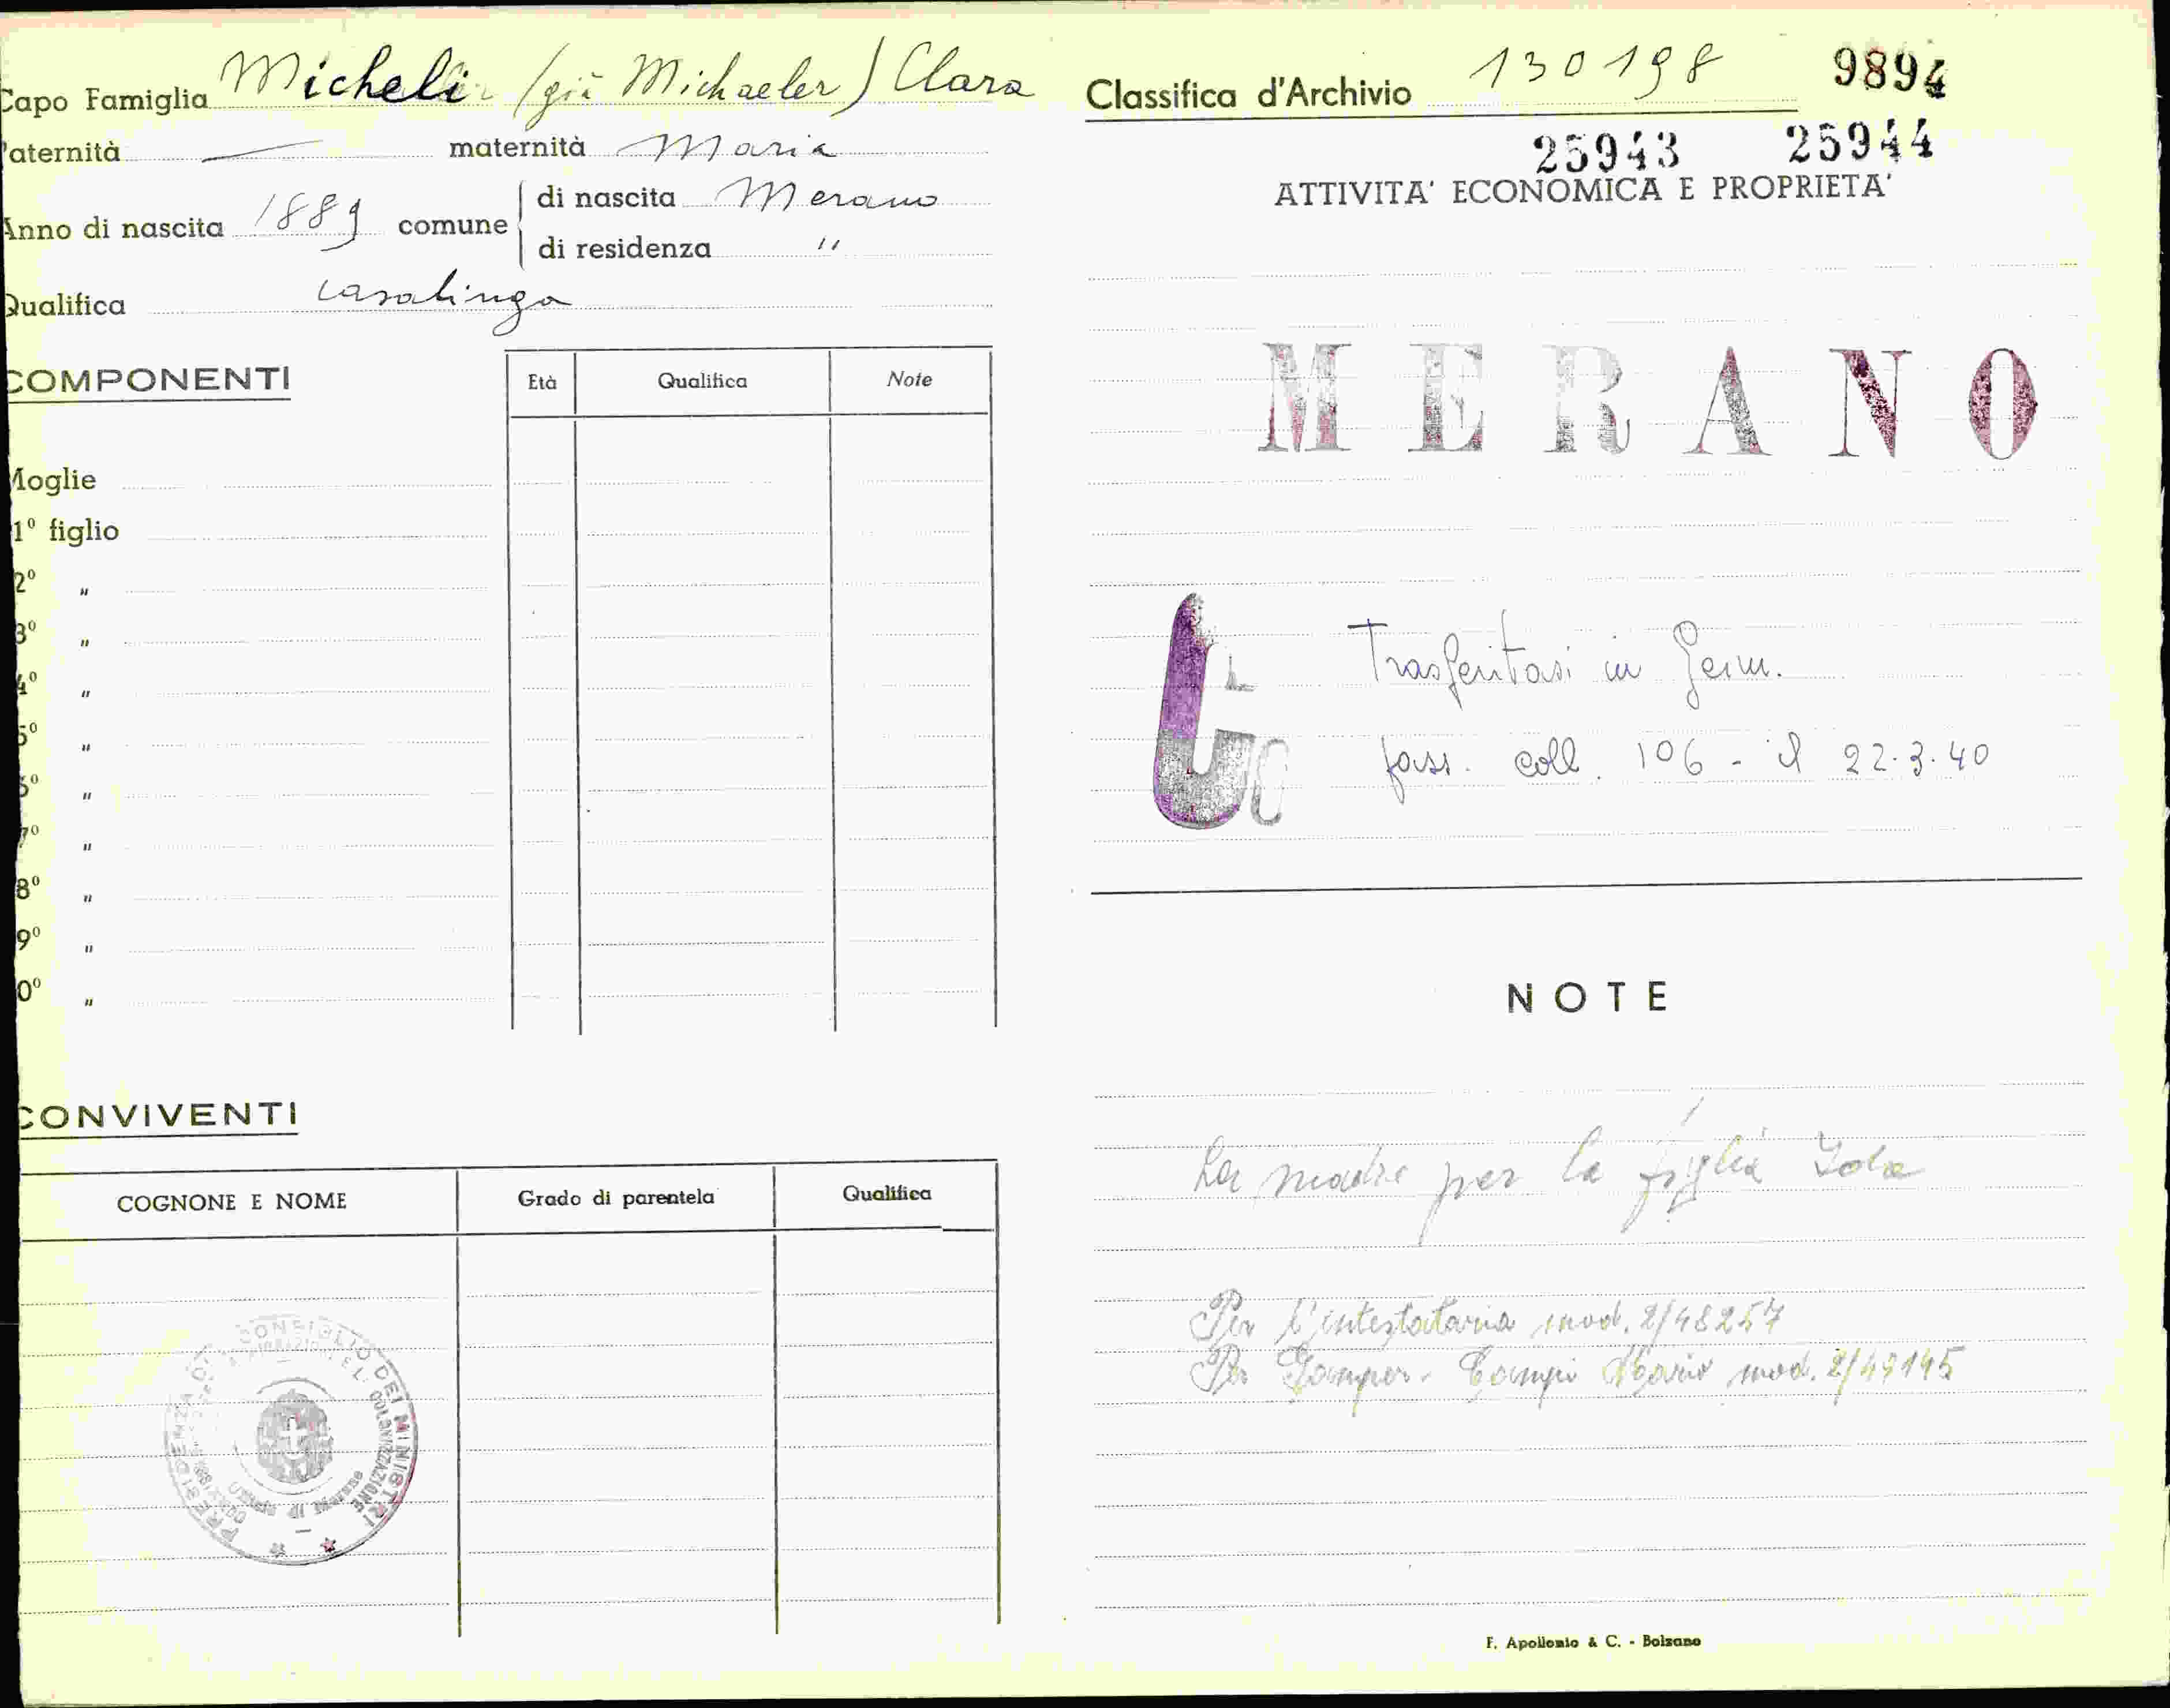 Capo Famiglia Micheli (già Michaeler) Clara
Paternità — maternità Maria
Anno di nascita 1889 comune di nascita Merano
di residenza "
Qualifica casalinga
COMPONENTI Età Qualifica Note
Moglie
1º figlio
2º "
3º "
4º "
5º "
6º "
7º "
8º "
9º "
0º "
CONVIVENTI
COGNONE E NOME Grado di parentela Qualifica
PRESIDENZA DEL CONSIGLIO DEI MINISTRI
Classifica d'Archivio 130198 9894
25943 25944
ATTIVITA' ECONOMICA E PROPRIETA'
MERANO
Trasferitasi in Germ.
fass. coll. 106 - il 22.3.40
NOTE
La madre per la figlia
Per l'intestataria mod. 2/48257
Per Gamper - Campi Mario mod. 2/49145
F. Apollonio & C. - Bolzano